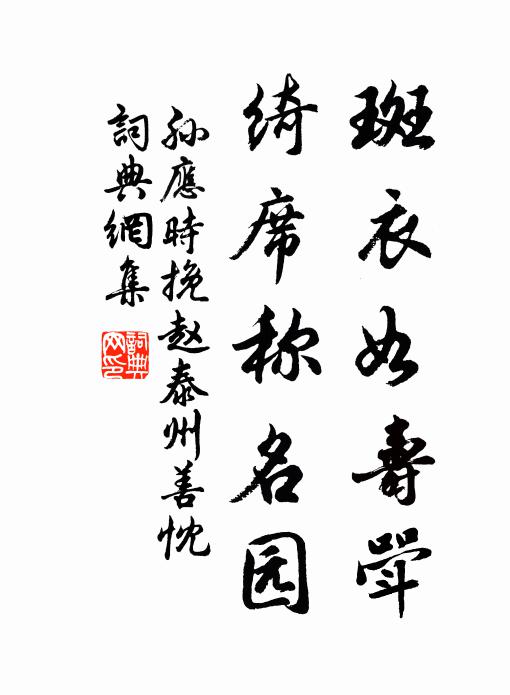 斑衣如壽斝
綺席称名园
孙應時挽赵泰州善忱
詞典網集
詞典
网印